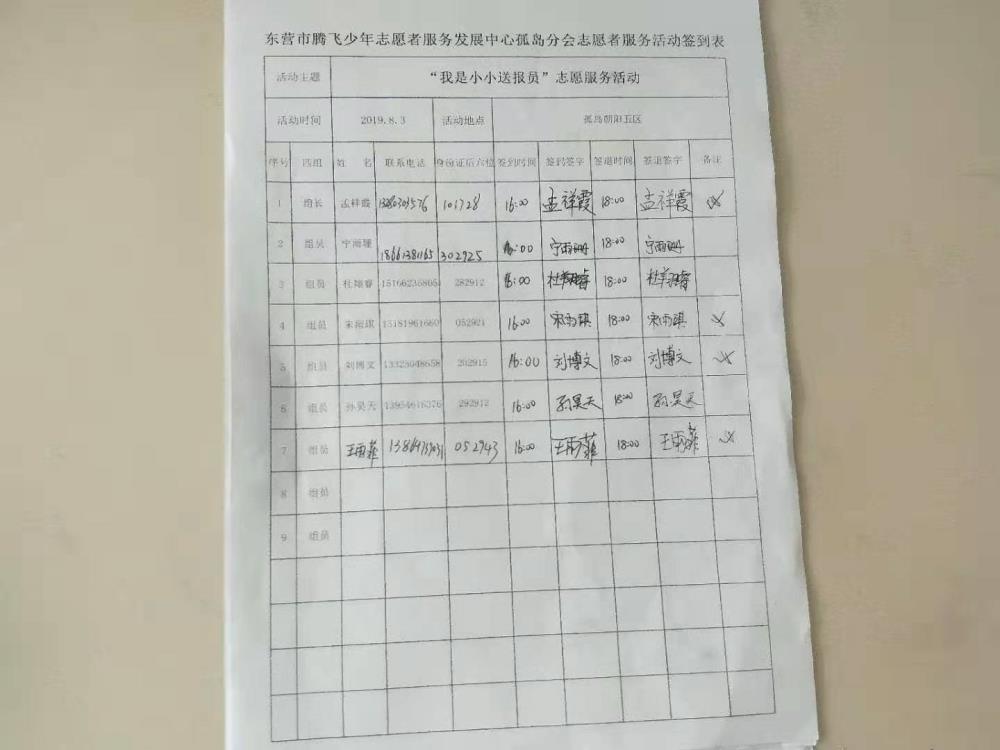 东营市腾飞少年志愿者服务发展中心孤岛分会志愿者服务活动签到表
活动主题 “我是小小送报员”志愿服务活动
活动时间 2019.8.3 活动地点 孤岛朝阳五区
序号 四组 姓 名 联系电话 身份证后六位 签到时间 签到签字 签退时间 签退签字 备注
1 组长 孟祥霞 101728 16:00 孟祥霞 18:00 孟祥霞
2 组员 宁雨珊 18661381165 302925 16:00 宁雨珊 18:00 宁雨珊
3 组员 杜翔睿 282912 16:00 杜翔睿 18:00 杜翔睿
4 组员 宋雨琪 15181961660 052921 16:00 宋雨琪 18:00 宋雨琪
5 组员 刘博文 13325048658 202915 16:00 刘博文 18:00 刘博文
6 组员 孙昊天 13954616376 292912 16:00 孙昊天 18:00 孙昊天
7 组员 王雨菲 052943 16:00 王雨菲 18:00 王雨菲
8 组员
9 组员